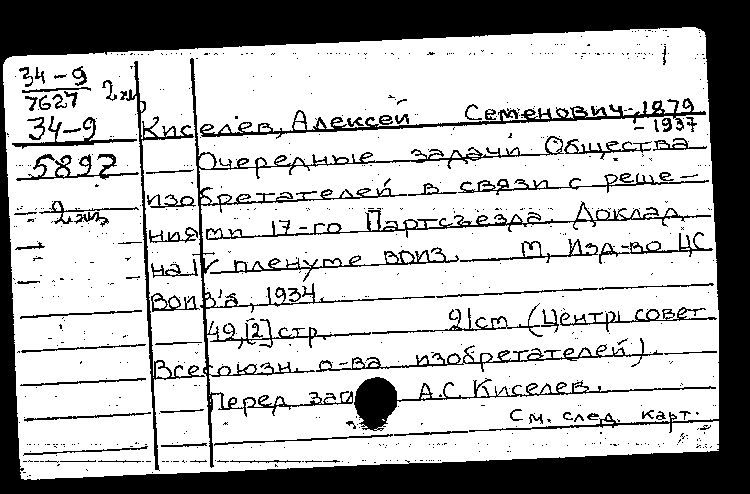 34-9
7627 2 экз.
34-9
5892
2 экз
Киселев, Алексей Семенович, 1879
- 1937
Очередные задачи Общества
изобретателей в связи с реше-
ниями 17-го Партсъезда. Доклад
на IV пленуме ВОИЗ. М, Изд-во ЦС
ВОИЗ'а, 1934.
49,[2] стр. 21cm. (Центр. совет
Всесоюзн. о-ва изобретателей).
Перед А.С. Киселев.
См. след. карт.